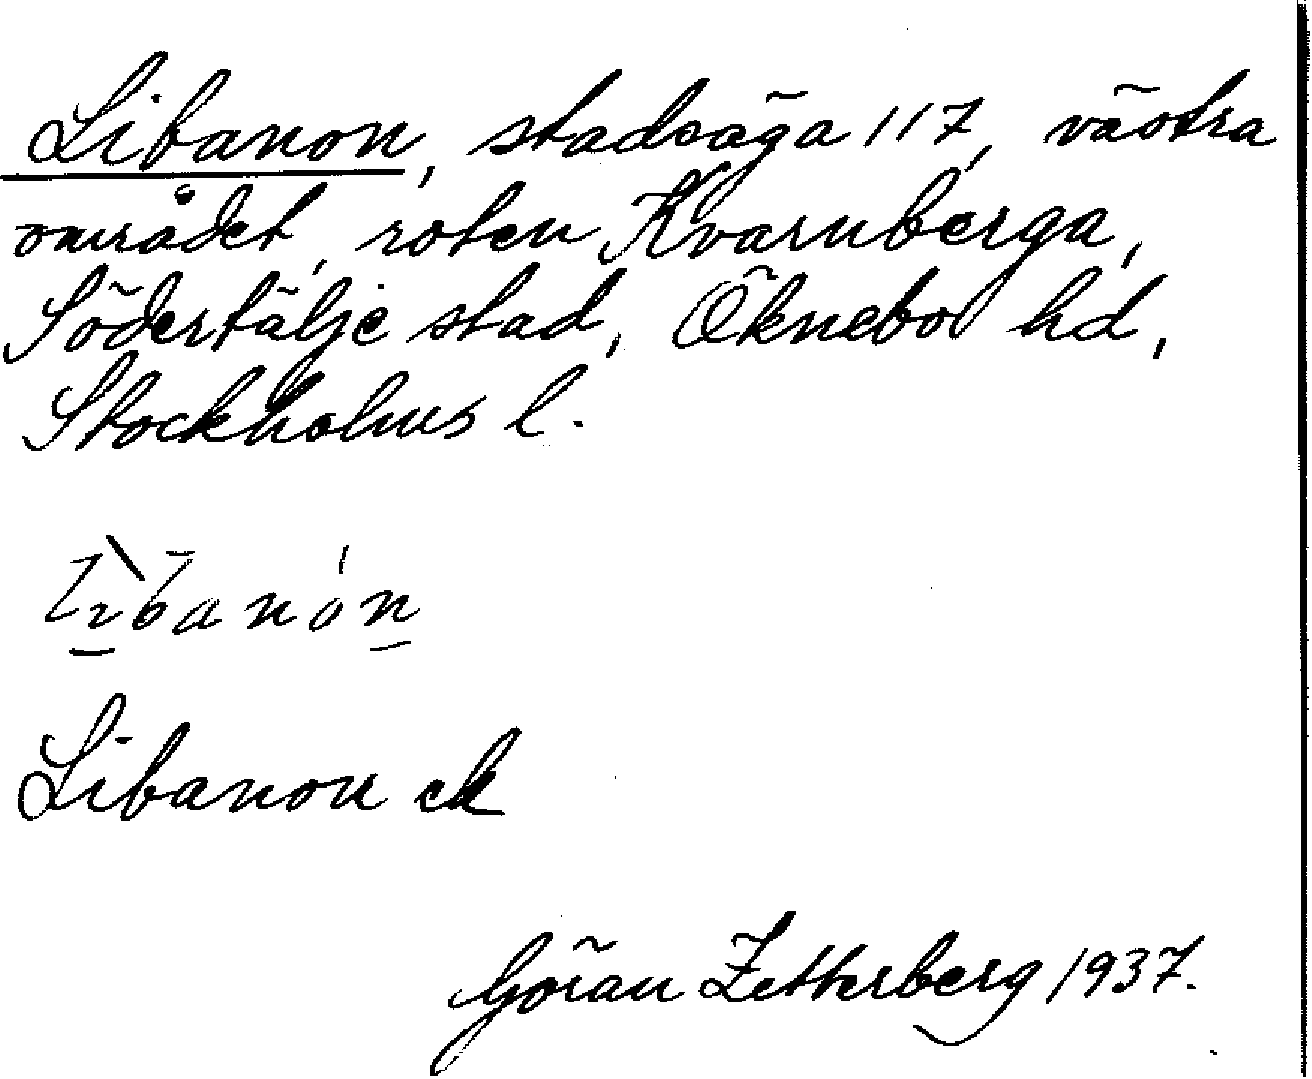 Libanon, stadsäga 117, västra
området, roten Kvarnberga,
Södertälje stad, Öknebo hd,
Stockholms l.
Libanon ek
Göran Zetterberg 1937.